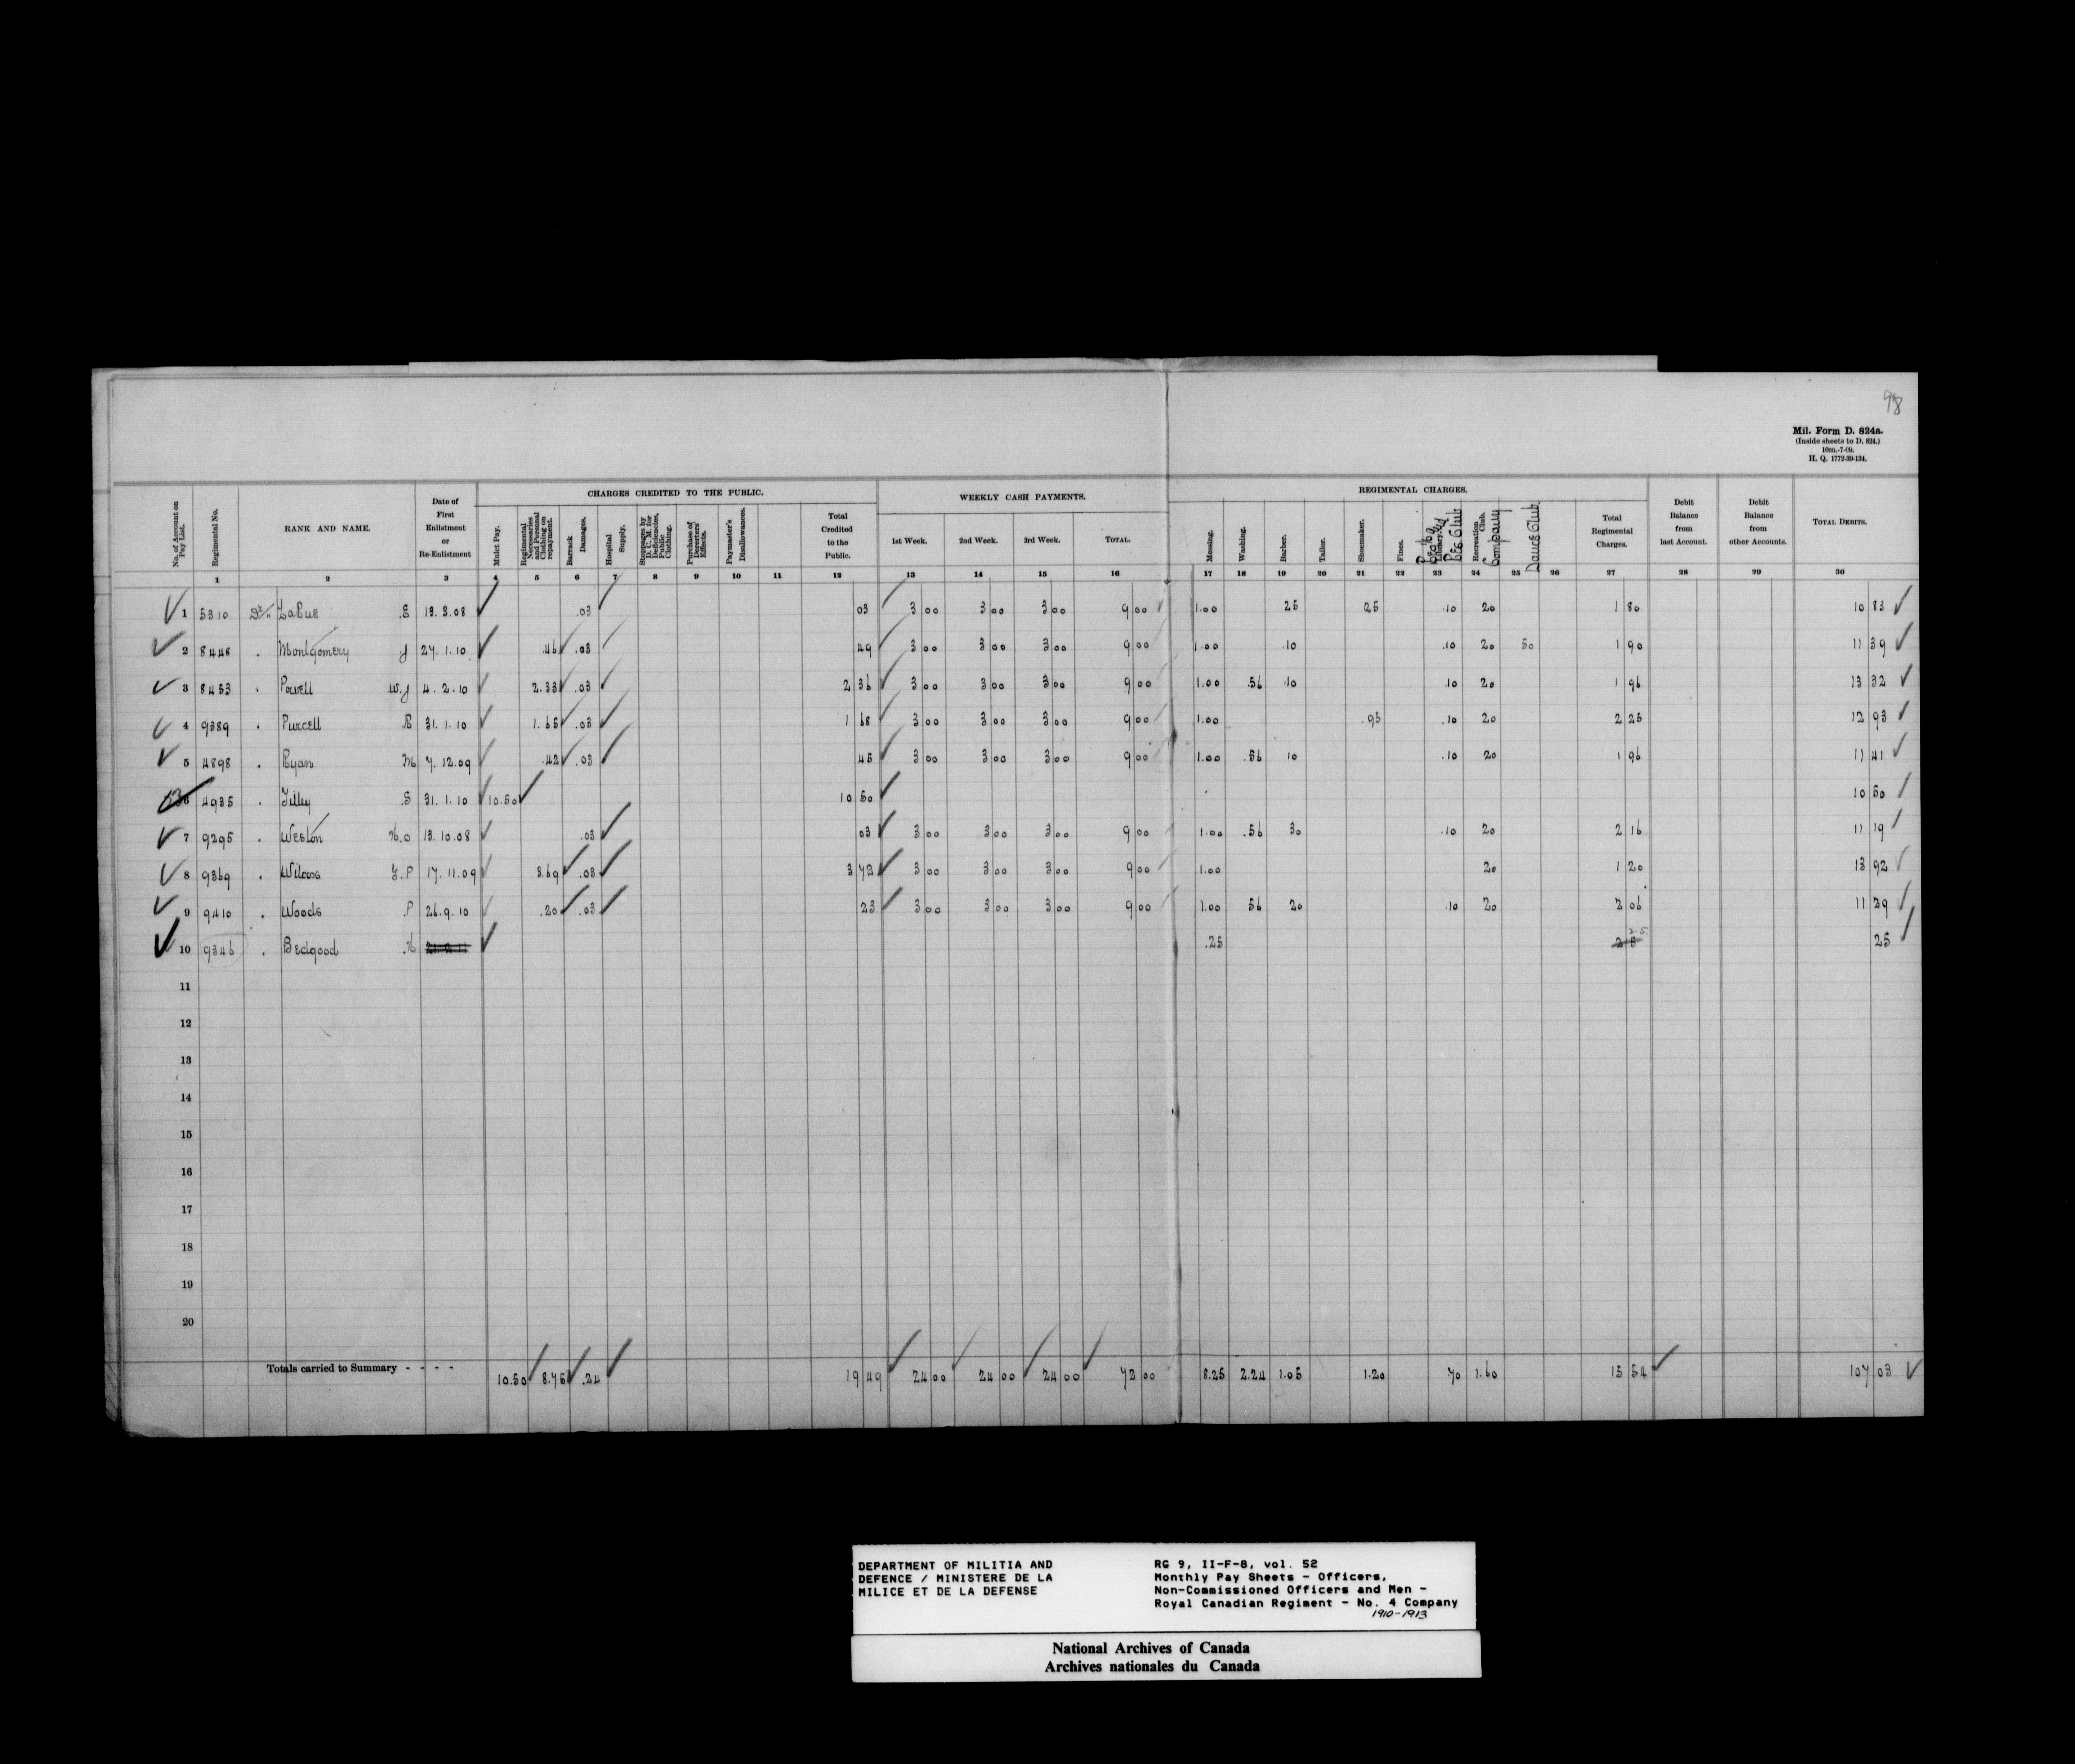 98
Mil. Form D. 824a.
(Inside sheets to D. 824.)
10m.-7-09.
H. Q. 1772-39-134.
CHARGES CREDITED TO THE PUBLIC. WEEKLY CASH PAYMENTS. REGIMENTAL CHARGES.
No. of Account on Pay List. Regimental No. RANK AND NAME. Date of First Enlistment or Re-Enlistment Mulct Pay. Regimental Necessaries and Personal Clothing on repayment. Barrack Damages. Hospital Supply. Stoppages by D. C. M. for Deficiencies, Public Clothing. Purchase of Deserters' Effects. Paymaster's Disallowances. Total Credited to the Public. 1st Week. 2nd Week. 3rd Week. TOTAL. Messing. Washing. Barber. Tailor. Shoemaker. Fines. Library. Recreation Club. Company Dance Club Total Regimental Charges. Debit Balance from last Account. Debit Balance from other Accounts. TOTAL DEBITS.
1 2 3 4 5 6 7 8 9 10 11 12 13 14 15 16 17 18 19 20 21 22 23 24 25 26 27 28 29 30
1 5310 LaRue .E 13.3.08 .03 03 3 00 3 00 3 00 9 00 1.00 25 25 .10 20 1 80 10 83
2 8448 . Montgomery J 27.1.10 .46 .03 49 3 00 3 00 3 00 9 00 1.00 .10 .10 20 50 1 90 11 39
3 8453 . Powell W.J 4.2.10 2.33 .03 2 36 3 00 3 00 3 00 9 00 1.00 .56 10 .10 20 1 96 13 32
4 9389 . Purcell .R 31.1.10 1.65 .03 1 68 3 00 3 00 3 00 9 00 1.00 .95 .10 20 2 25 12 93
5 4898 . Ryan M 7.12.09 .42 .03 45 3 00 3 00 3 00 9 00 1.00 .56 10 .10 20 1 96 11 41
6 4935 . Tilley .S 31.1.10 10.50 10 50 10 50
7 9295 . Weston H.O 13.10.08 .03 03 3 00 3 00 3 00 9 00 1.00 .56 30 .10 20 2 16 11 19
8 9369 . Wilcox .P 17.11.09 3.69 .03 3 72 3 00 3 00 3 00 9 00 1.00 20 1 20 13 92
9 9410 . Woods .P 26.9.10 .20 .03 23 3 00 3 00 3 00 9 00 1.00 56 20 .10 20 2 06 11 29
10 9346 . Bedgood .H .25 25 25
11
12
13
14
15
16
17
18
19
20
Totals carried to Summary - - - - 10.50 8.75 .24 19 49 24 00 24 00 24 00 72 00 8.25 2.24 1.05 1.20 70 1.60 15 54 107 03
DEPARTMENT OF MILITIA AND
DEFENCE / MINISTERE DE LA
MILICE ET DE LA DEFENSE
RG 9, II-F-8, vol. 52
Monthly Pay Sheets - Officers,
Non-Commissioned Officers and Men -
Royal Canadian Regiment - No. 4 Company
1910-1913
National Archives of Canada
Archives nationales du Canada